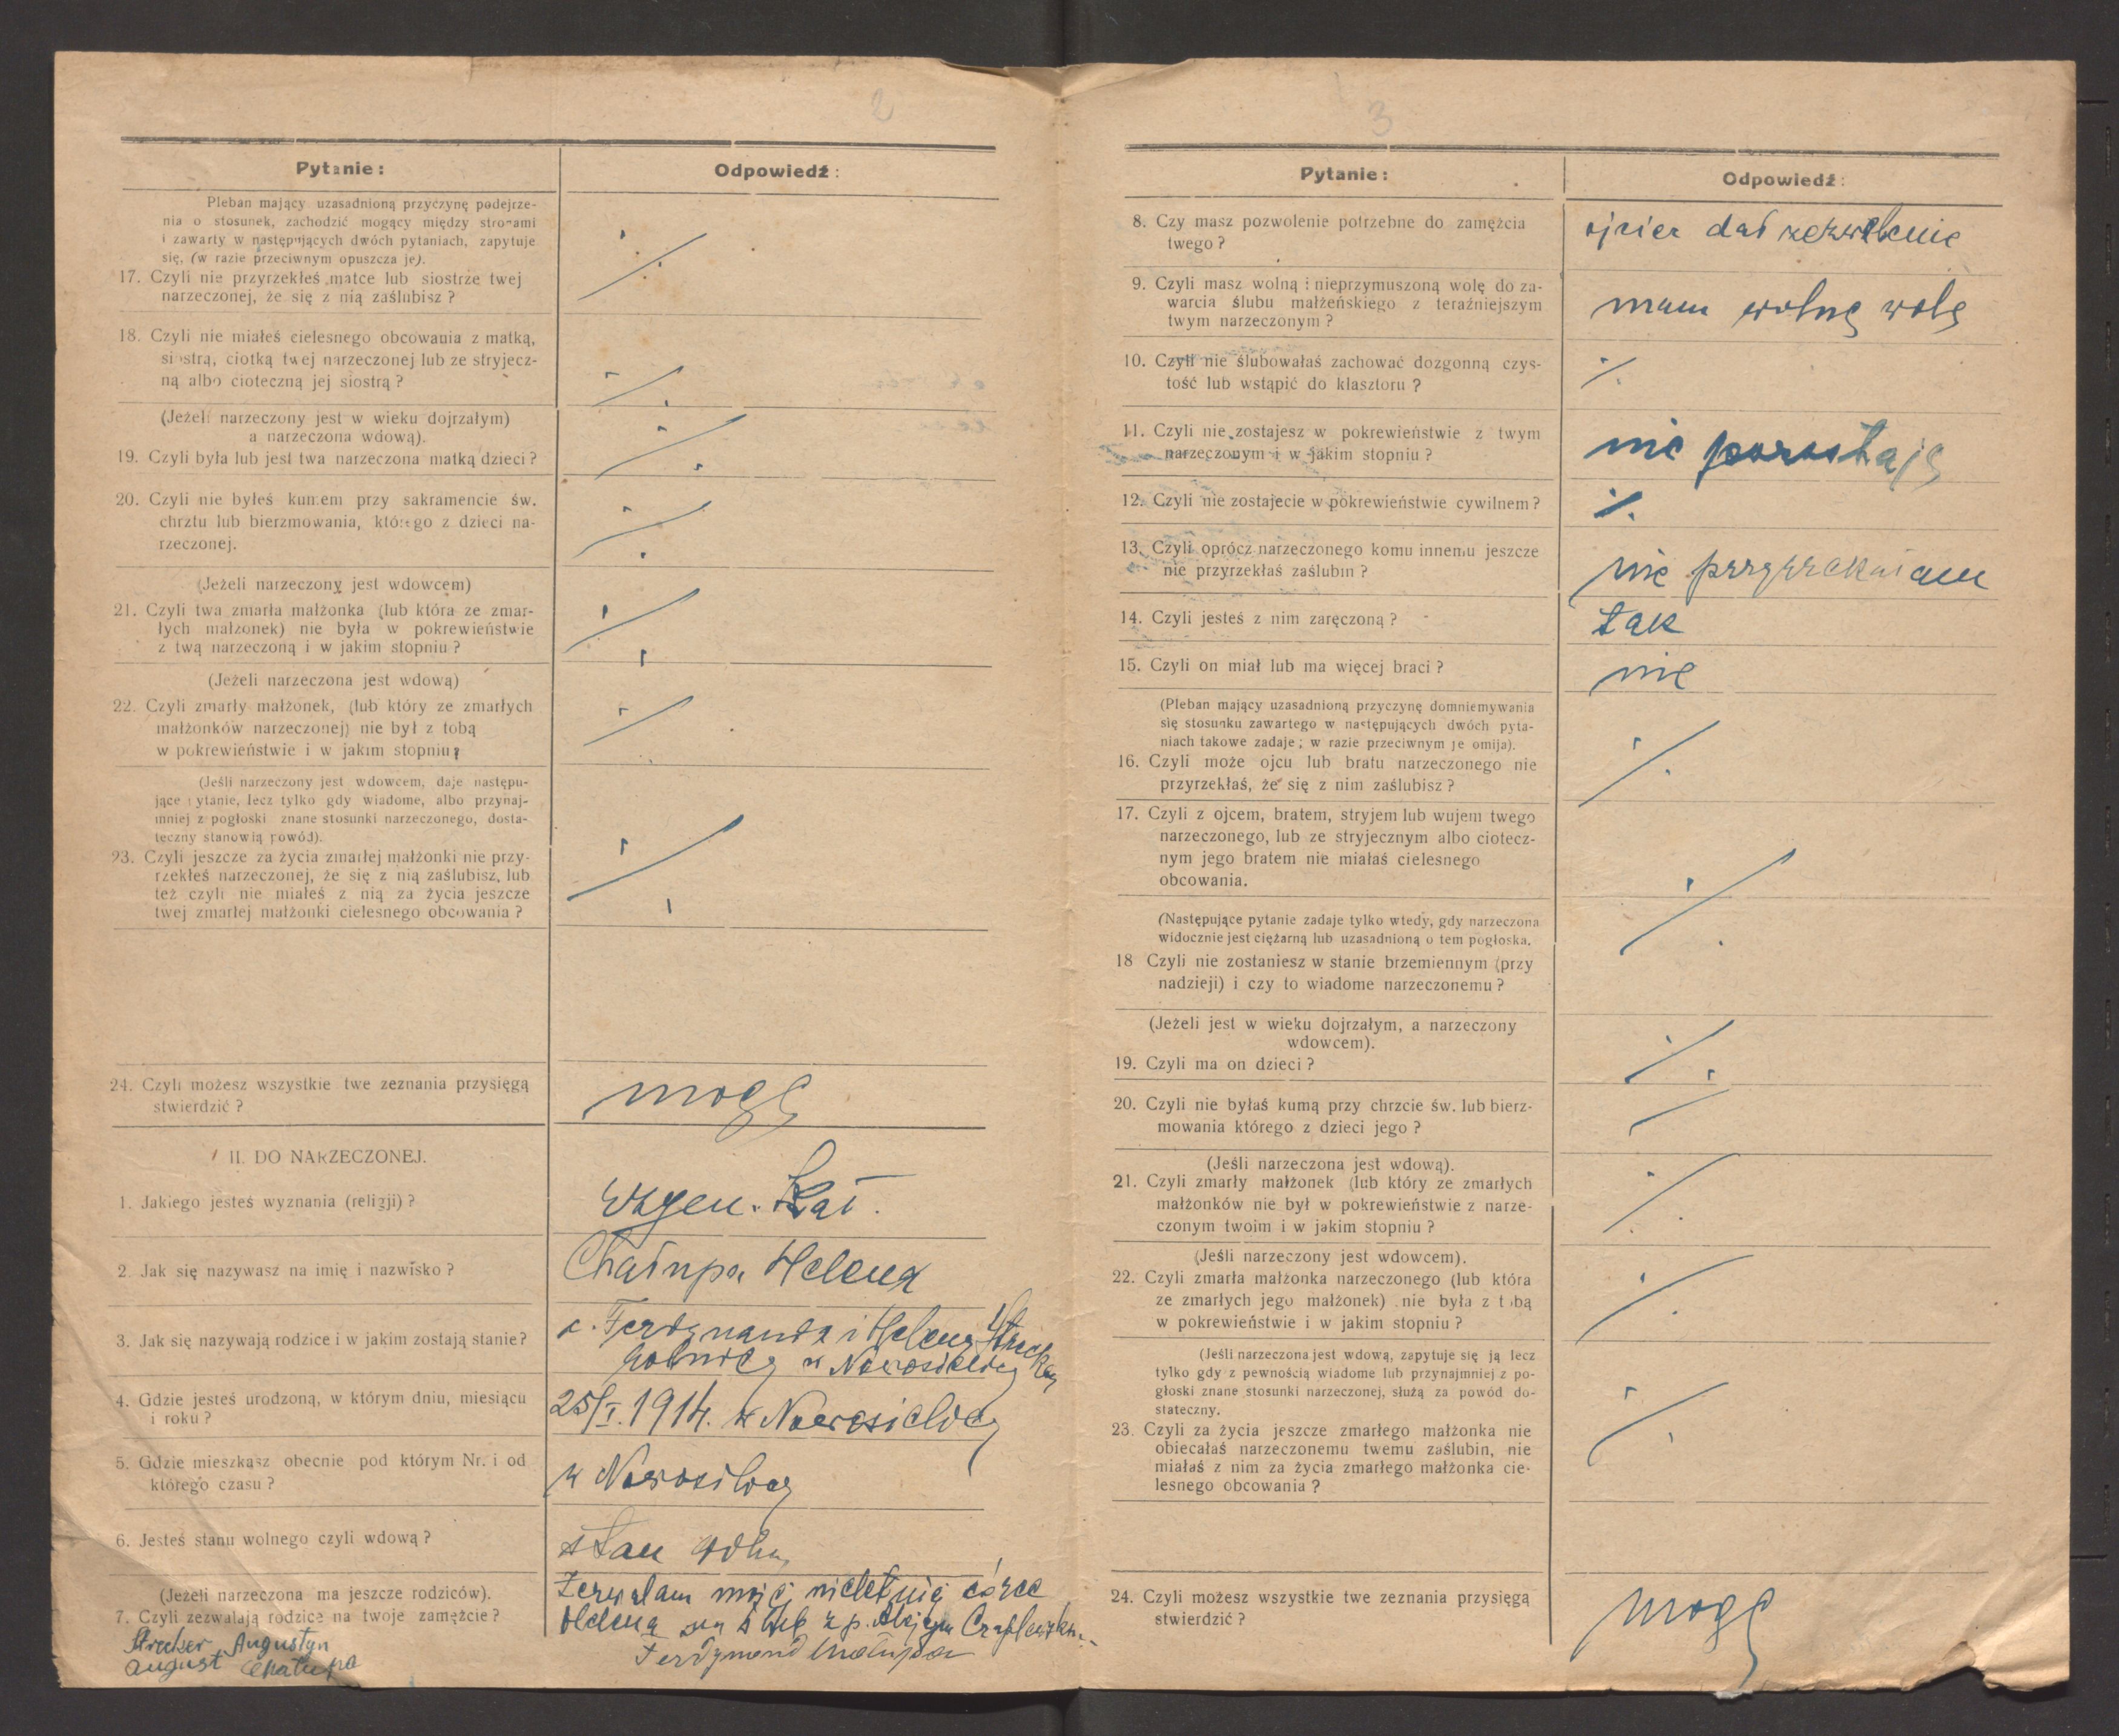 2
Pytanie:
Odpowiedź:
Pleban mający uzasadnioną przyczynę podejrze-
nia o stosunek, zachodzić mogący między stronami
i zawarty w następujących dwóch pytaniach, zapytuje
się, (w razie przeciwnym opuszcza je).
17. Czyli nie przyrzekłeś matce lub siostrze twej
narzeczonej, że się z nią zaślubisz ?
·/.
18. Czyli nie miałeś cielesnego obcowania z matką,
siostrą, ciotką twej narzeczonej lub ze stryjecz-
ną albo cioteczną jej siostrą ?
·/.
(Jeżeli narzeczony jest w wieku dojrzałym)
a narzeczona wdową).
19. Czyli była lub jest twa narzeczona matką dzieci ?
·/.
20. Czyli nie byłeś kumem przy sakramencie św.
chrztu lub bierzmowania, którego z dzieci na-
rzeczonej.
·/.
(Jeżeli narzeczony jest wdowcem)
21. Czyli twa zmarła małżonka (lub która ze zmar-
łych małżonek) nie była w pokrewieństwie
z twą narzeczoną i w jakim stopniu ?
·/.
(Jeżeli narzeczona jest wdową)
22. Czyli zmarły małżonek, (lub który ze zmarłych
małżonków narzeczonej) nie był z tobą
w pokrewieństwie i w jakim stopniu ?
·/.
(Jeśli narzeczony jest wdowcem, daje następu-
jące pytanie, lecz tylko gdy wiadome, albo przynaj-
mniej z pogłoski znane stosunki narzeczonego, dosta-
teczny stanowią powód).
23. Czyli jeszcze za życia zmarłej małżonki nie przy-
rzekłeś narzeczonej, że się z nią zaślubisz, lub
też czyli nie miałeś z nią za życia jeszcze
twej zmarłej małżonki cielesnego obcowania ?
·/.
24. Czyli możesz wszystkie twe zeznania przysięgą
stwierdzić ?
mogę
II. DO NARZECZONEJ.
1. Jakiego jesteś wyznania (religji) ?
Kat.
2. Jak się nazywasz na imię i nazwisko ?
Chałupa Helena
3. Jak się nazywają rodzice i w jakim zostają stanie ?
c. Ferdynanda i Heleny
rolnicy w Nowosielicy
4. Gdzie jesteś urodzoną, w którym dniu, miesiącu
i roku ?
25/I. 1914. w Nowosielicy
5. Gdzie mieszkasz obecnie pod którym Nr. i od
którego czasu ?
w Nowosilicy
6. Jesteś stanu wolnego czyli wdową ?
stan wolny
(Jeżeli narzeczona ma jeszcze rodziców).
7. Czyli zezwalają rodzice na twoje zamężcie ?
Zezwalam mojej nieletniej córce
Helenie na ślub z p.
Ferdynand Chałupa
Augustyn
August Chałupa
3
Pytanie:
Odpowiedź:
8. Czy masz pozwolenie potrzebne do zamężcia
twego ?
ojciec dał zezwolenie
9. Czyli masz wolną i nieprzymuszoną wolę do za-
warcia ślubu małżeńskiego z teraźniejszym
twym narzeczonym ?
mam wolną wolę
10. Czyli nie ślubowałaś zachować dozgonną czys-
tość lub wstąpić do klasztoru ?
·/.
11. Czyli nie zostajesz w pokrewieństwie z twym
narzeczonym i w jakim stopniu ?
nie pozostaję
12. Czyli nie zostajecie w pokrewieństwie cywilnem ?
·/.
13. Czyli oprócz narzeczonego komu innemu jeszcze
nie przyrzekłaś zaślubin ?
nie przyrzekałam
14. Czyli jesteś z nim zaręczoną ?
tak
15. Czyli on miał lub ma więcej braci ?
nie
(Pleban mający uzasadnioną przyczynę domniemywania
się stosunku zawartego w następujących dwóch pyta-
niach takowe zadaje ; w razie przeciwnym je omija).
16. Czyli może ojcu lub bratu narzeczonego nie
przyrzekłaś, że się z nim zaślubisz ?
·/.
17. Czyli z ojcem, bratem, stryjem lub wujem twego
narzeczonego, lub ze stryjecznym albo ciotecz-
nym jego bratem nie miałaś cielesnego
obcowania.
·/.
(Następujące pytanie zadaje tylko wtedy, gdy narzeczona
widocznie jest ciężarną lub uzasadnioną o tem pogłoska.
18 Czyli nie zostaniesz w stanie brzemiennym (przy
nadzieji) i czy to wiadome narzeczonemu ?
(Jeżeli jest w wieku dojrzałym, a narzeczony
wdowcem).
19. Czyli ma on dzieci ?
·/.
20. Czyli nie byłaś kumą przy chrzcie św. lub bierz-
mowania którego z dzieci jego ?
/
(Jeśli narzeczona jest wdową).
21. Czyli zmarły małżonek (lub który ze zmarłych
małżonków nie był w pokrewieństwie z narze-
czonym twoim i w jakim stopniu ?
·/.
(Jeśli narzeczony jest wdowcem).
22. Czyli zmarła małżonka narzeczonego (lub która
ze zmarłych jego małżonek) nie była z tobą
w pokrewieństwie i w jakim stopniu ?
·/.
(Jeśli narzeczona jest wdową, zapytuje się ją lecz
tylko gdy z pewnością wiadome lub przynajmniej z po-
głoski znane stosunki narzeczonej, służą za powód do-
stateczny.
23. Czyli za życia jeszcze zmarłego małżonka nie
obiecałaś narzeczonemu twemu zaślubin, nie
miałaś z nim za życia zmarłego małżonka cie-
lesnego obcowania ?
·/.
24. Czyli możesz wszystkie twe zeznania przysięgą
stwierdzić ?
mogę